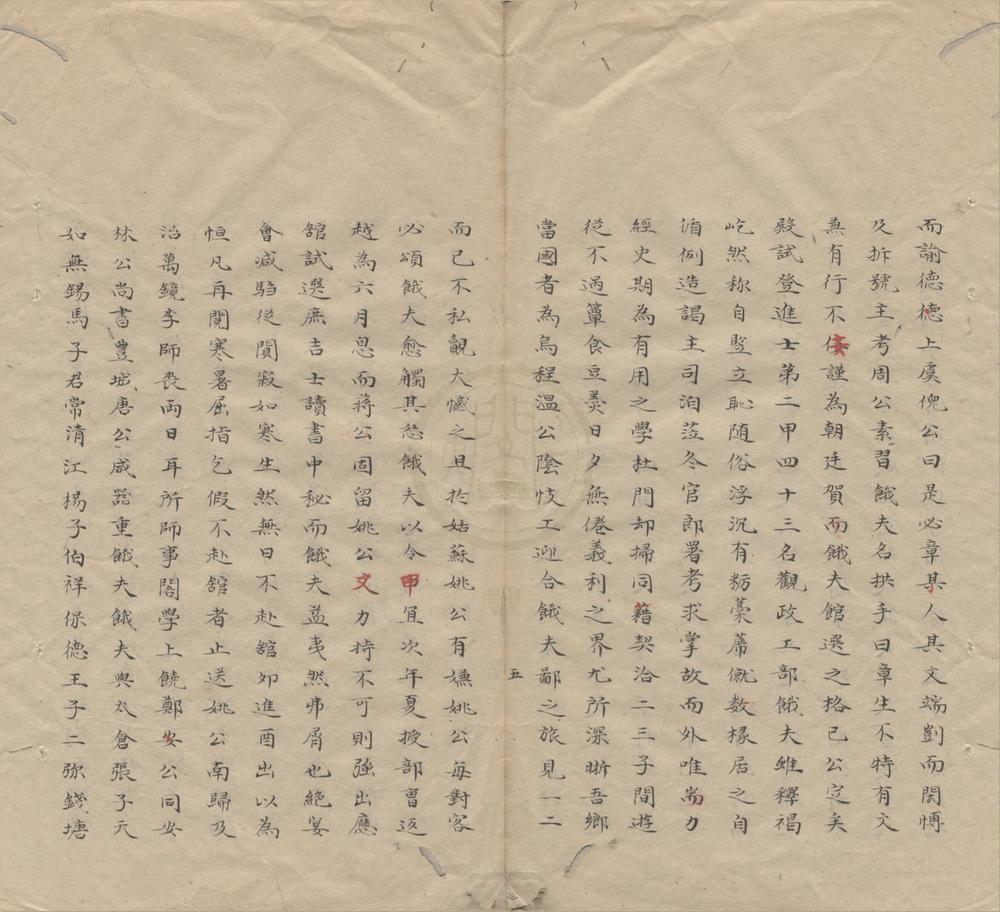 而諭德德上虞倪公曰是必章某人其文端剴而閎博
及拆號主考周公素習餓夫名拱手曰章生不特有文
兼有行不佞謹為朝廷賀而餓夫館選之格已公定矣
殿試登進士第二甲四十三名觀政工部餓夫雖釋褐
屹然称自竪立恥随俗浮沉有粝藁蓆僦数椽居之自
循例造謁主司洎莅冬官郎署考求掌故而外唯耑力
經史期為有用之學杜門却掃同籍契洽二三子間遊
從不過簞食豆羮日夕無倦義利之界尤所深晰吾鄉
當國者為烏程溫公陰忮工迎合餓夫鄙之旅見一二
五
而已不私覿大憾之且扵姑蘇姚公有嫌姚公每對客
必頌餓夫愈觸其怒餓夫以令甲冝次年夏授部曹返
越為六月息而蔣公固留姚公文力持不可則强出應
舘試選庶吉士讀書中秘而餓夫益夷然弗屑也絕宴
會减騶從閴寂如寒生然無日不赴舘夘進酉出以為
恒凡再閱寒暑屈指乞假不赴舘者止送姚公南歸及
治萬鏡李師喪両日耳所師事閣學上饒鄭公同安
林公尚書豊城唐公咸器重餓夫餓夫與太倉張子天
如無錫馬子君常清江楊子伯祥保德王子二弥錢塘